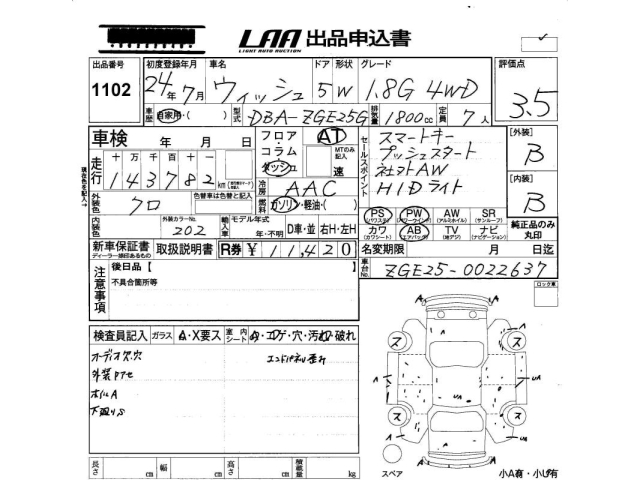 LAA 出品申込書
LIGHT AUTO AUCTION
出品番号 初度登録年月 車名 ドア 形状 グレード 評価点
1102 24年7月 ウィッシュ 5 W 1.8G 4WD 3.5
車歴 自家用・( ) 型式 DBA-ZGE25G 排気量 1800cc 定員 7人
車検 年 月 日 フロア・コラム・ダッシュ AT MTのみ記入 速
セールスポイント スマートキー
プッシュスタート
社外AW
HIDライト
[外装] B
[内装] B
走行 十万千百十一
143782 km
現在色を記入
冷房 AAC
外装色 クロ 色替車は色替と記入 燃料 ガソリン・軽油・( )
外装カラーNo. 202 輸入車 モデル年式 年・不明 D車・並 右H・左H
PS (パワステ) PW (パワーウインド) AW (アルミホイル) SR (サンルーフ)
カワ (カワシート) AB (エアバック) TV (地デジ) ナビ (ナビゲーション)
純正品のみ丸印
新車保証書 ディーラー捺印あるもの 取扱説明書 R券 ¥11,420 名変期限 月 日迄
車台No. ZGE25-0022637
注意事項 後日品【 】
不具合箇所等
ロック車
検査員記入 ガラス A・X要ス 室内シート
オーディオ欠穴
エンドパネル歪み
外装アセ
ホイルA
下廻りS
長さ cm 幅 cm 高さ cm 積載量 kg
スペア
小A有・小U有